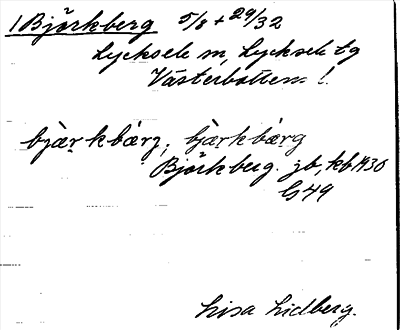 1 Björkberg 5/8 + 29/32
Lycksele sn, Lycksele tg
Västerbottens l.
bjæ̣rkbærg, bjæ̣rkbærg
Björkberg. jb, kb 1930
G 49
Lisa Lidberg.